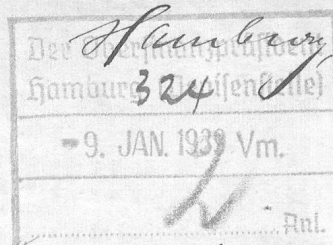 Hamburg,
Der Oberfinanzpräsident
Hamburg (Devisenstelle)
324
-9. JAN. 1939 Vm.
Anl.